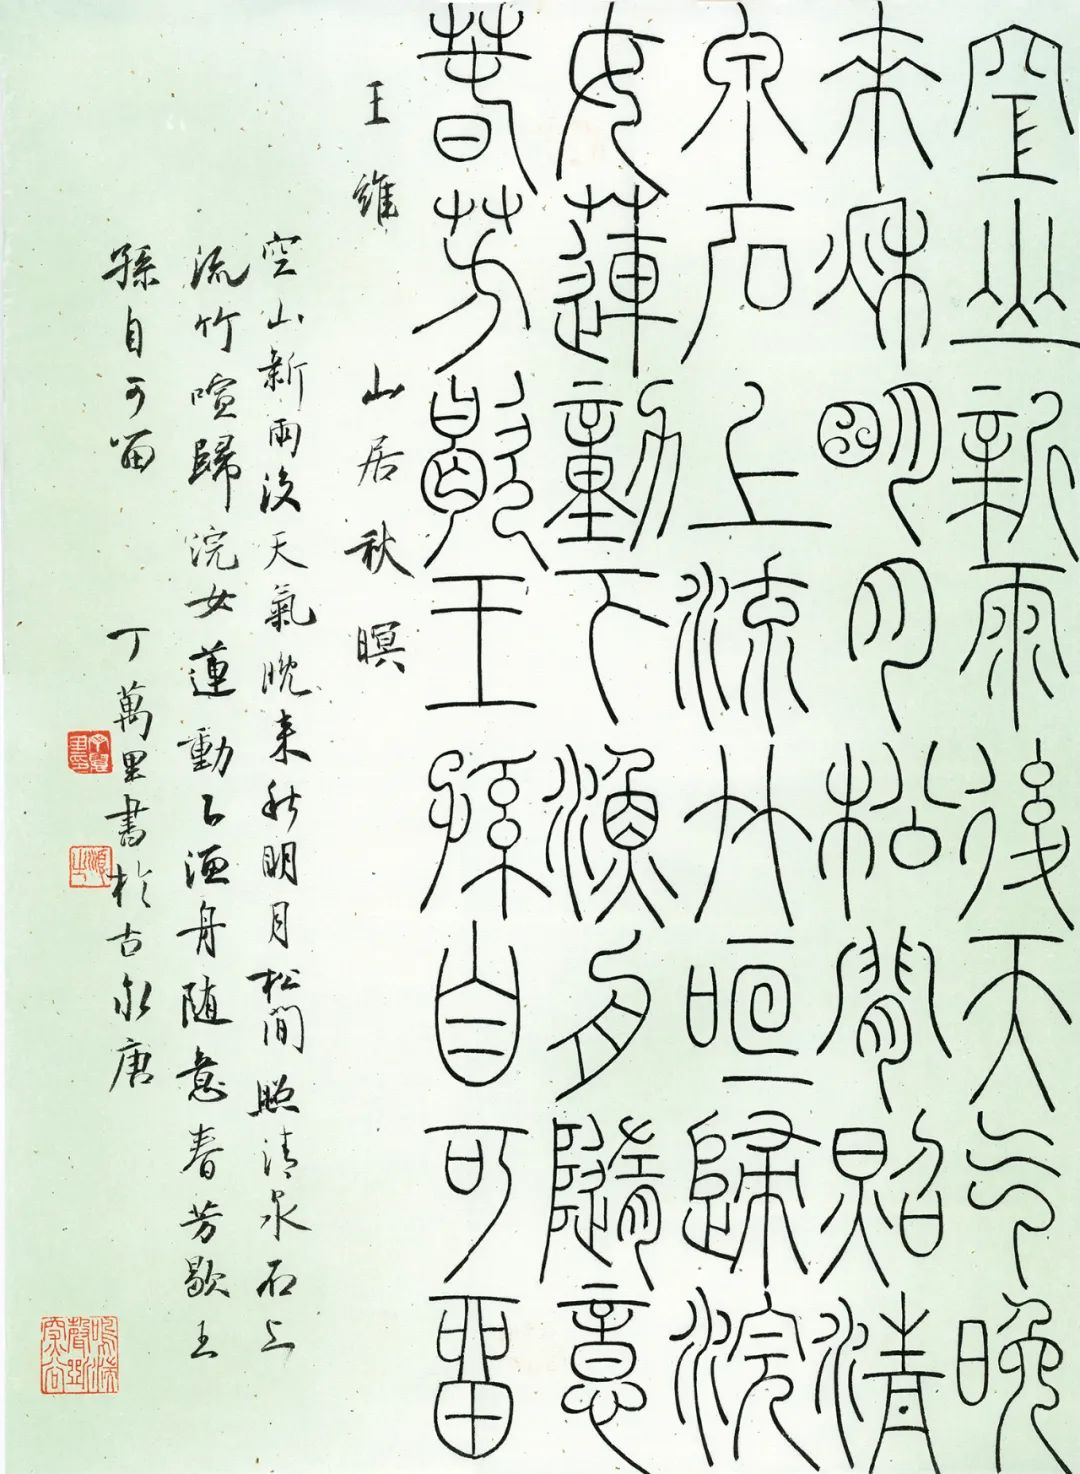 空山新雨後天气晚
來秋明月松閒照清
泉石上流竹喧歸浣
女蓮動下漁舟隨意
春芳歇王孫自可留
王維 山居秋暝
空山新雨後天氣晚来秋明月松間照清泉石上
流竹喧歸浣女蓮動下漁舟随意春芳歇王
孫自可留 丁萬里書於古永唐